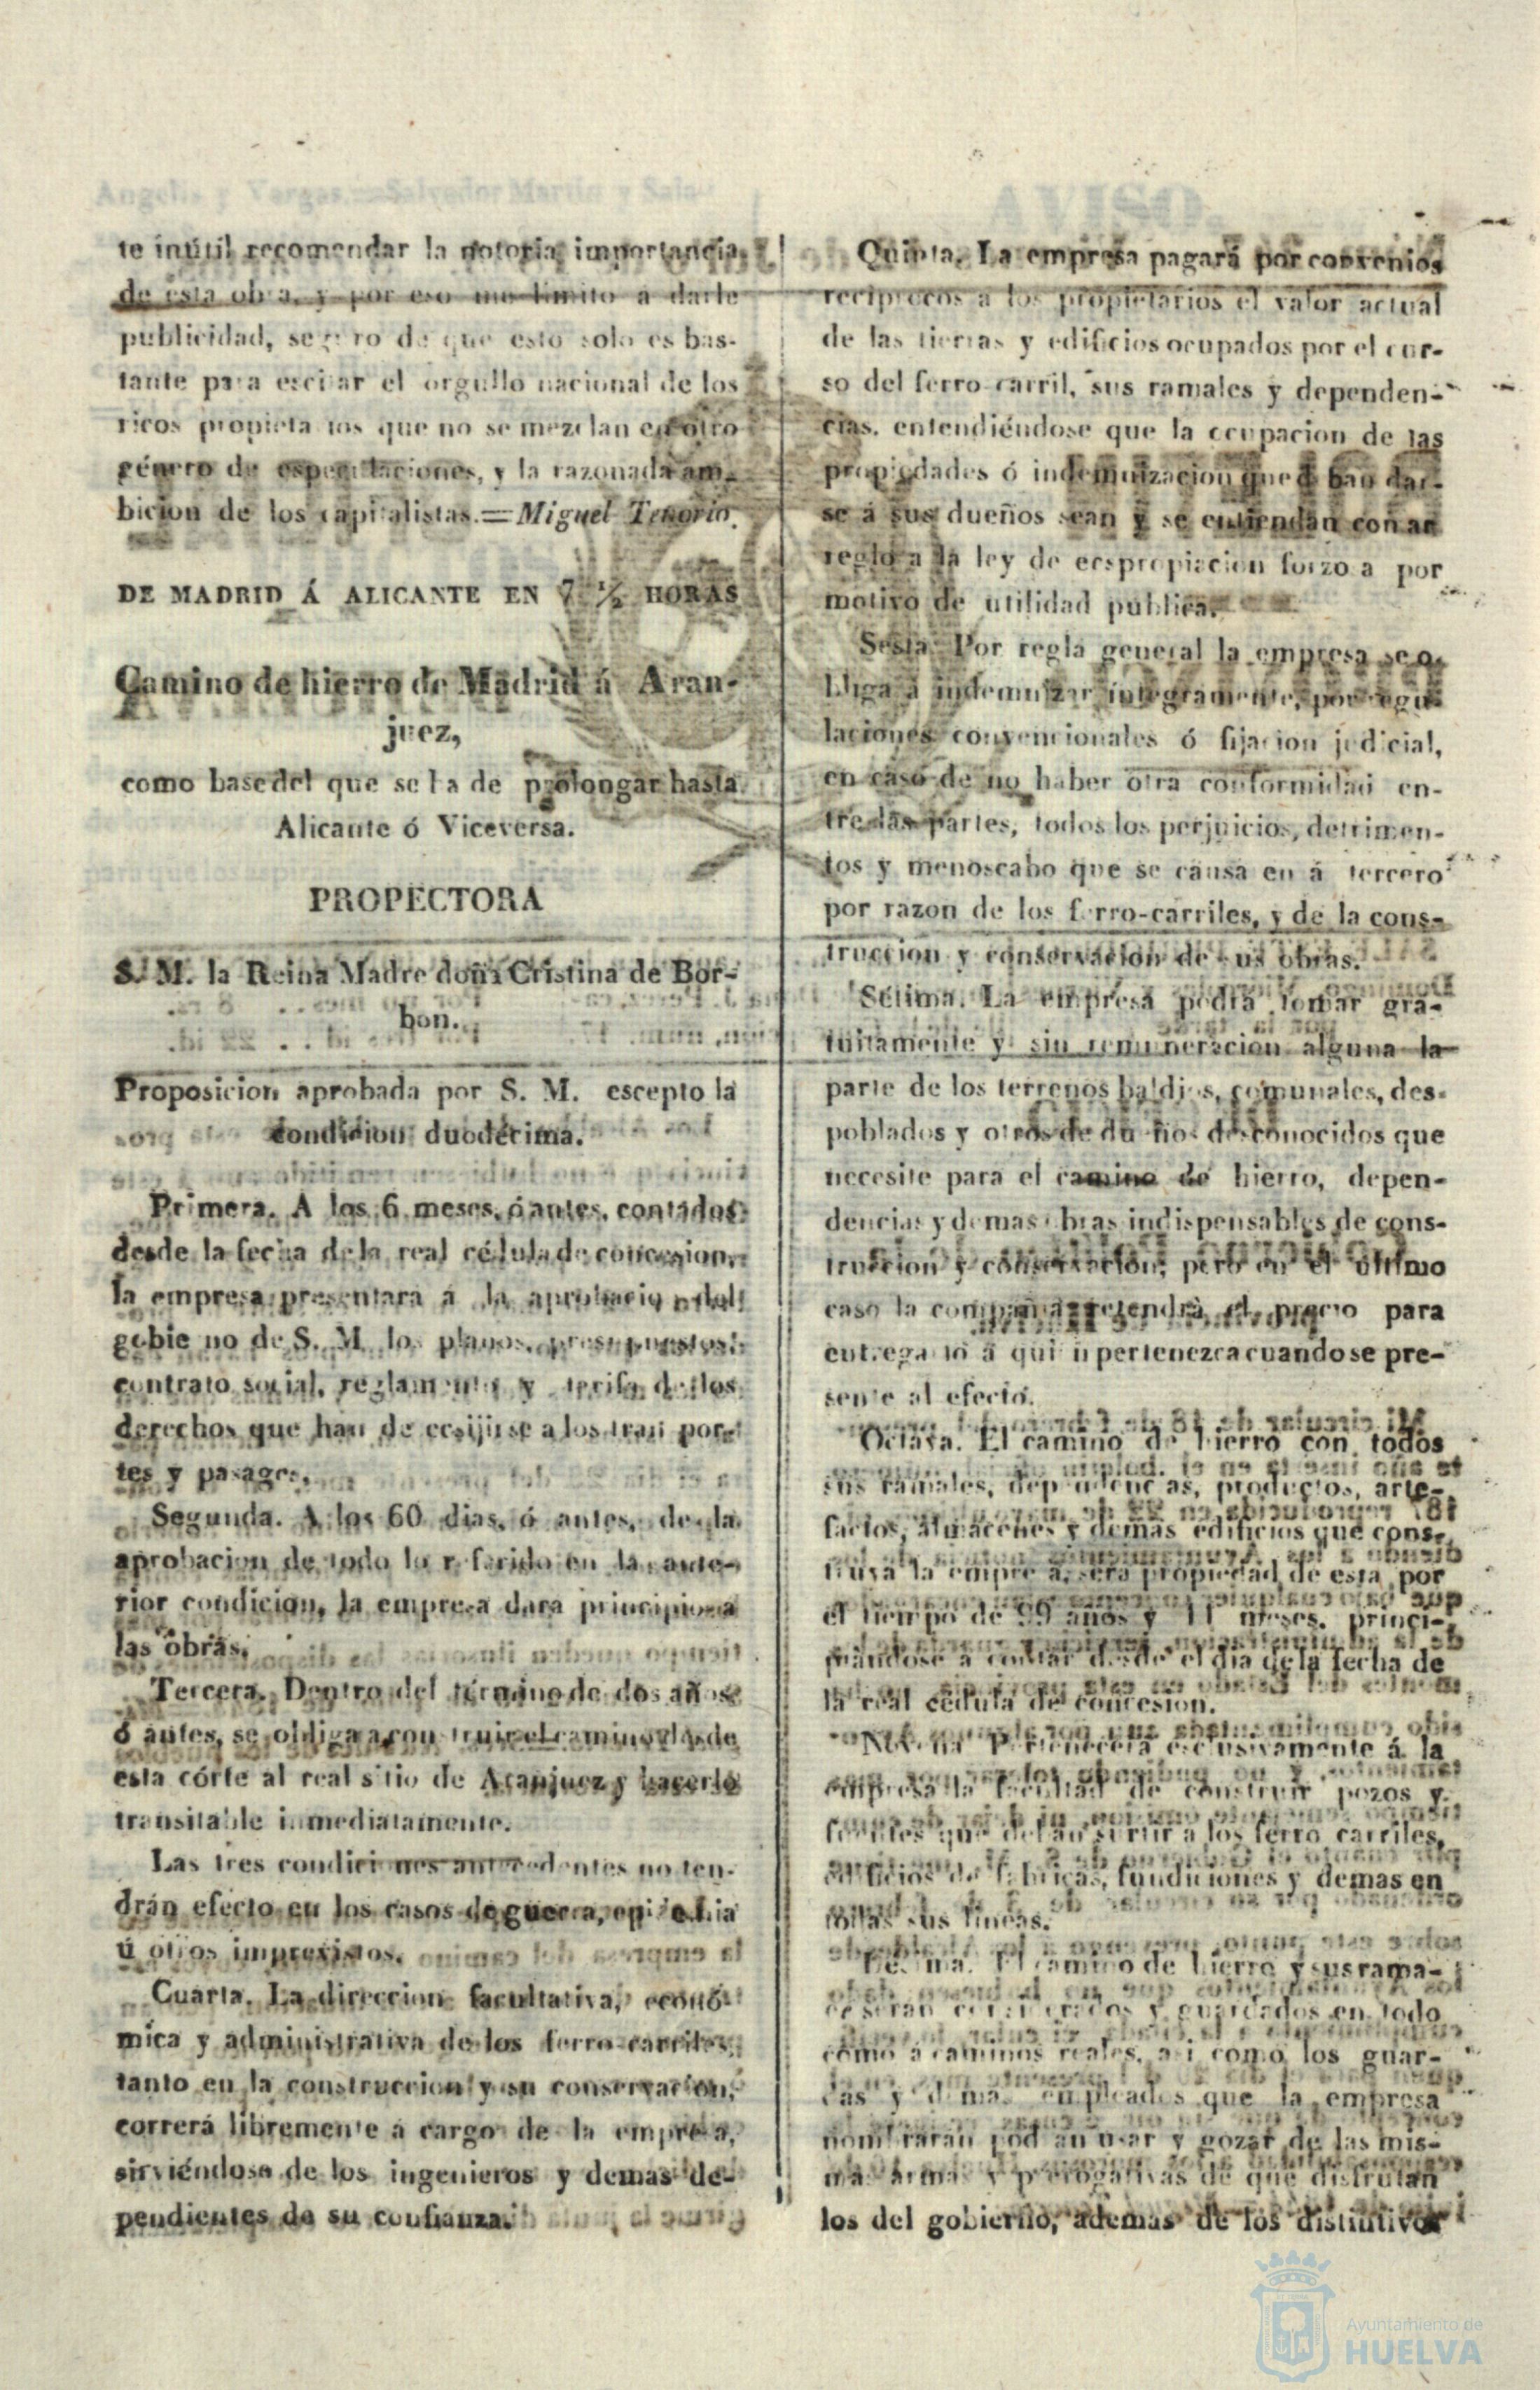 te inútil recomendar la notoria importancia
de esta obra, y por eso me limito á darle
publicidad, seguro de que esto solo es bas-
tante para escitar el orgullo nacional de los
ricos propietarios que no se mezclan en otro
género de especulaciones, y la razonada am-
bicion de los capitalistas.=Miguel Tenorio.
DE MADRID Á ALICANTE EN 7 ½ HORAS
Camino de hierro de Madrid á Aran-
juez,
como base del que se ha de prolongar hasta
Alicante ó Viceversa.
PROPECTORA
S. M. la Reina Madre doña Cristina de Bor-
bon.
Proposicion aprobada por S. M. escepto la
condicion duodécima.
Primera. A los 6 meses, ó antes, contados
desde la fecha de la real cédula de concesion,
la empresa presentará á la aprobacion del
gobierno de S. M. los planos, presupuestos,
contrato social, reglamentos y tarifa de los
derechos que han de ecsijirse a los tran portes
tes y pasages.
Segunda. A los 60 dias, ó antes, de la
aprobacion de todo lo referido en la ante-
rior condicion, la empresa dara principio a
las obras.
Tercera. Dentro del término de dos años
ó antes, se obliga a construir el camino desde
esta córte al real sitio de Aranjuez y hacerlo
transitable inmediatamente.
Las tres condiciones antecedentes no ten-
drán efecto en los casos de guerra, epidemia
ú otros imprevistos.
Cuarta. La direccion facultativa, econó-
mica y administrativa de los ferro-carriles,
tanto en la construccion y su conservacion,
correrá libremente á cargo de la empresa,
sirviéndose de los ingenieros y demas de-
pendientes de su confianza.
Quinta. La empresa pagará por convenios
reciprocos á los propietarios el valor actual
de las tierras y edificios ocupados por el cur-
so del ferro carril, sus ramales y dependen-
cias, entendiéndose que la ocupacion de las
propiedades ó indemnizacion que han dar-
se á sus dueños sean y se entiendan con ar
reglo a la ley de ecspropiacion forzosa por
motivo de utilidad pública.
Sesta. Por regla general la empresa se o-
bliga á indemnizar integramente, por regu-
laciones convencionales ó fijacion judicial,
en caso de no haber otra conformidad en-
tre las partes, todos los perjuicios, detrimen-
tos y menoscabo que se causaren á tercero
por razon de los ferro-carriles, y de la cons-
truccion y conservacion de sus obras.
Sétima. La empresa podrá tomar gra-
tuitamente y sin remuneracion alguna la
parte de los terrenos baldios, comunales, des-
poblados y otros de dueños desconocidos que
necesite para el camino de hierro, depen-
dencias y demas obras indispensables de cons-
truccion y conservacion; pero en el último
caso la compañia retendrá el precio para
entregarlo á quien pertenezca cuando se pre-
sente al efecto.
Octava. El camino de hierro con todos
sus ramales, dependencias, productos, arte-
factos, almacenes y demas edificios que cons-
truya la empresa, será propiedad de esta por
el tiempo de 99 años y 11 meses, princi-
piándose á contar desde el dia de la fecha de
la real cédula de concesion.
Novena. Pertenecerá esclusivamente á la
empresa la facultad de construir pozos y
fuentes que deban surtir a los ferro carriles,
edificios de fabricas, fundiciones y demas en
todas sus lineas.
Décima. El camino de hierro y sus rama-
les serán considerados y guardados en todo
como á caminos reales, asi como los guar-
das y demas empleados que la empresa
nombrarán podrán usar y gozar de las mis-
mas armas y prerogativas de que disfrutan
los del gobierno, ademas de los distintivos
Ayuntamiento de
HUELVA